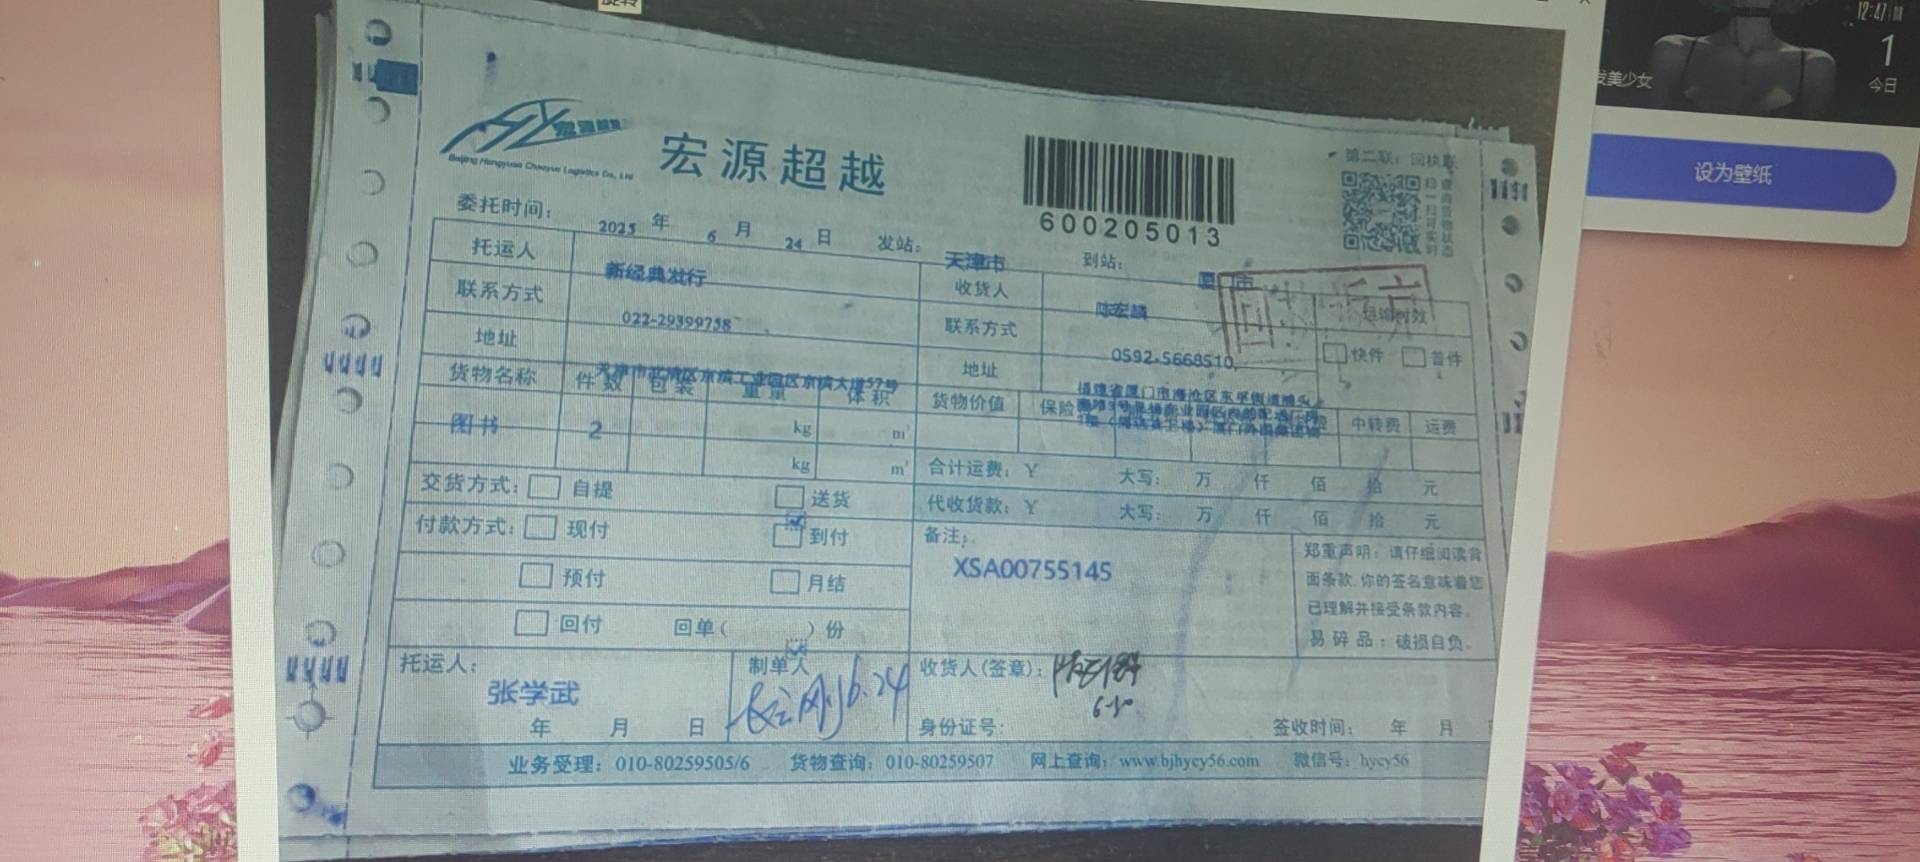 旋转
12:47
1
今日
发美少女
设为壁纸
宏源超越
Beijing Hongyuan Chaoyue Logistics Co., Ltd
宏源超越
600205013
第二联：回执联
委托时间： 2025 年 6 月 24 日 发站： 天津市 到站： 厦 市
托运人 新经典发行 收货人 陈宏麟
运输时效
联系方式 022-29399758 联系方式 0592-5668510
快件 普件
地址 天津市北辰区京滨工业园区京滨大道57号 地址
货物名称 件数 包装 重量 体积 货物价值 保险 中转费 运费
图书 2 kg m³
kg m³
合计运费：¥ 大写： 万 仟 佰 拾 元
交货方式： 自提 送货
代收货款：¥ 大写： 万 仟 佰 拾 元
付款方式： 现付 到付
备注：
XSA00755145
预付 月结
回付 回单（ ）份
郑重声明：请仔细阅读背
面条款，你的签名意味着您
已理解并接受条款内容。
易碎品：破损自负。
托运人： 张学武
年 月 日
制单人 6.24
收货人(签章)：
身份证号：
签收时间： 年 月
业务受理：010-80259505/6 货物查询：010-80259507 网上查询：www.bjhycy56.com 微信号：hycy56